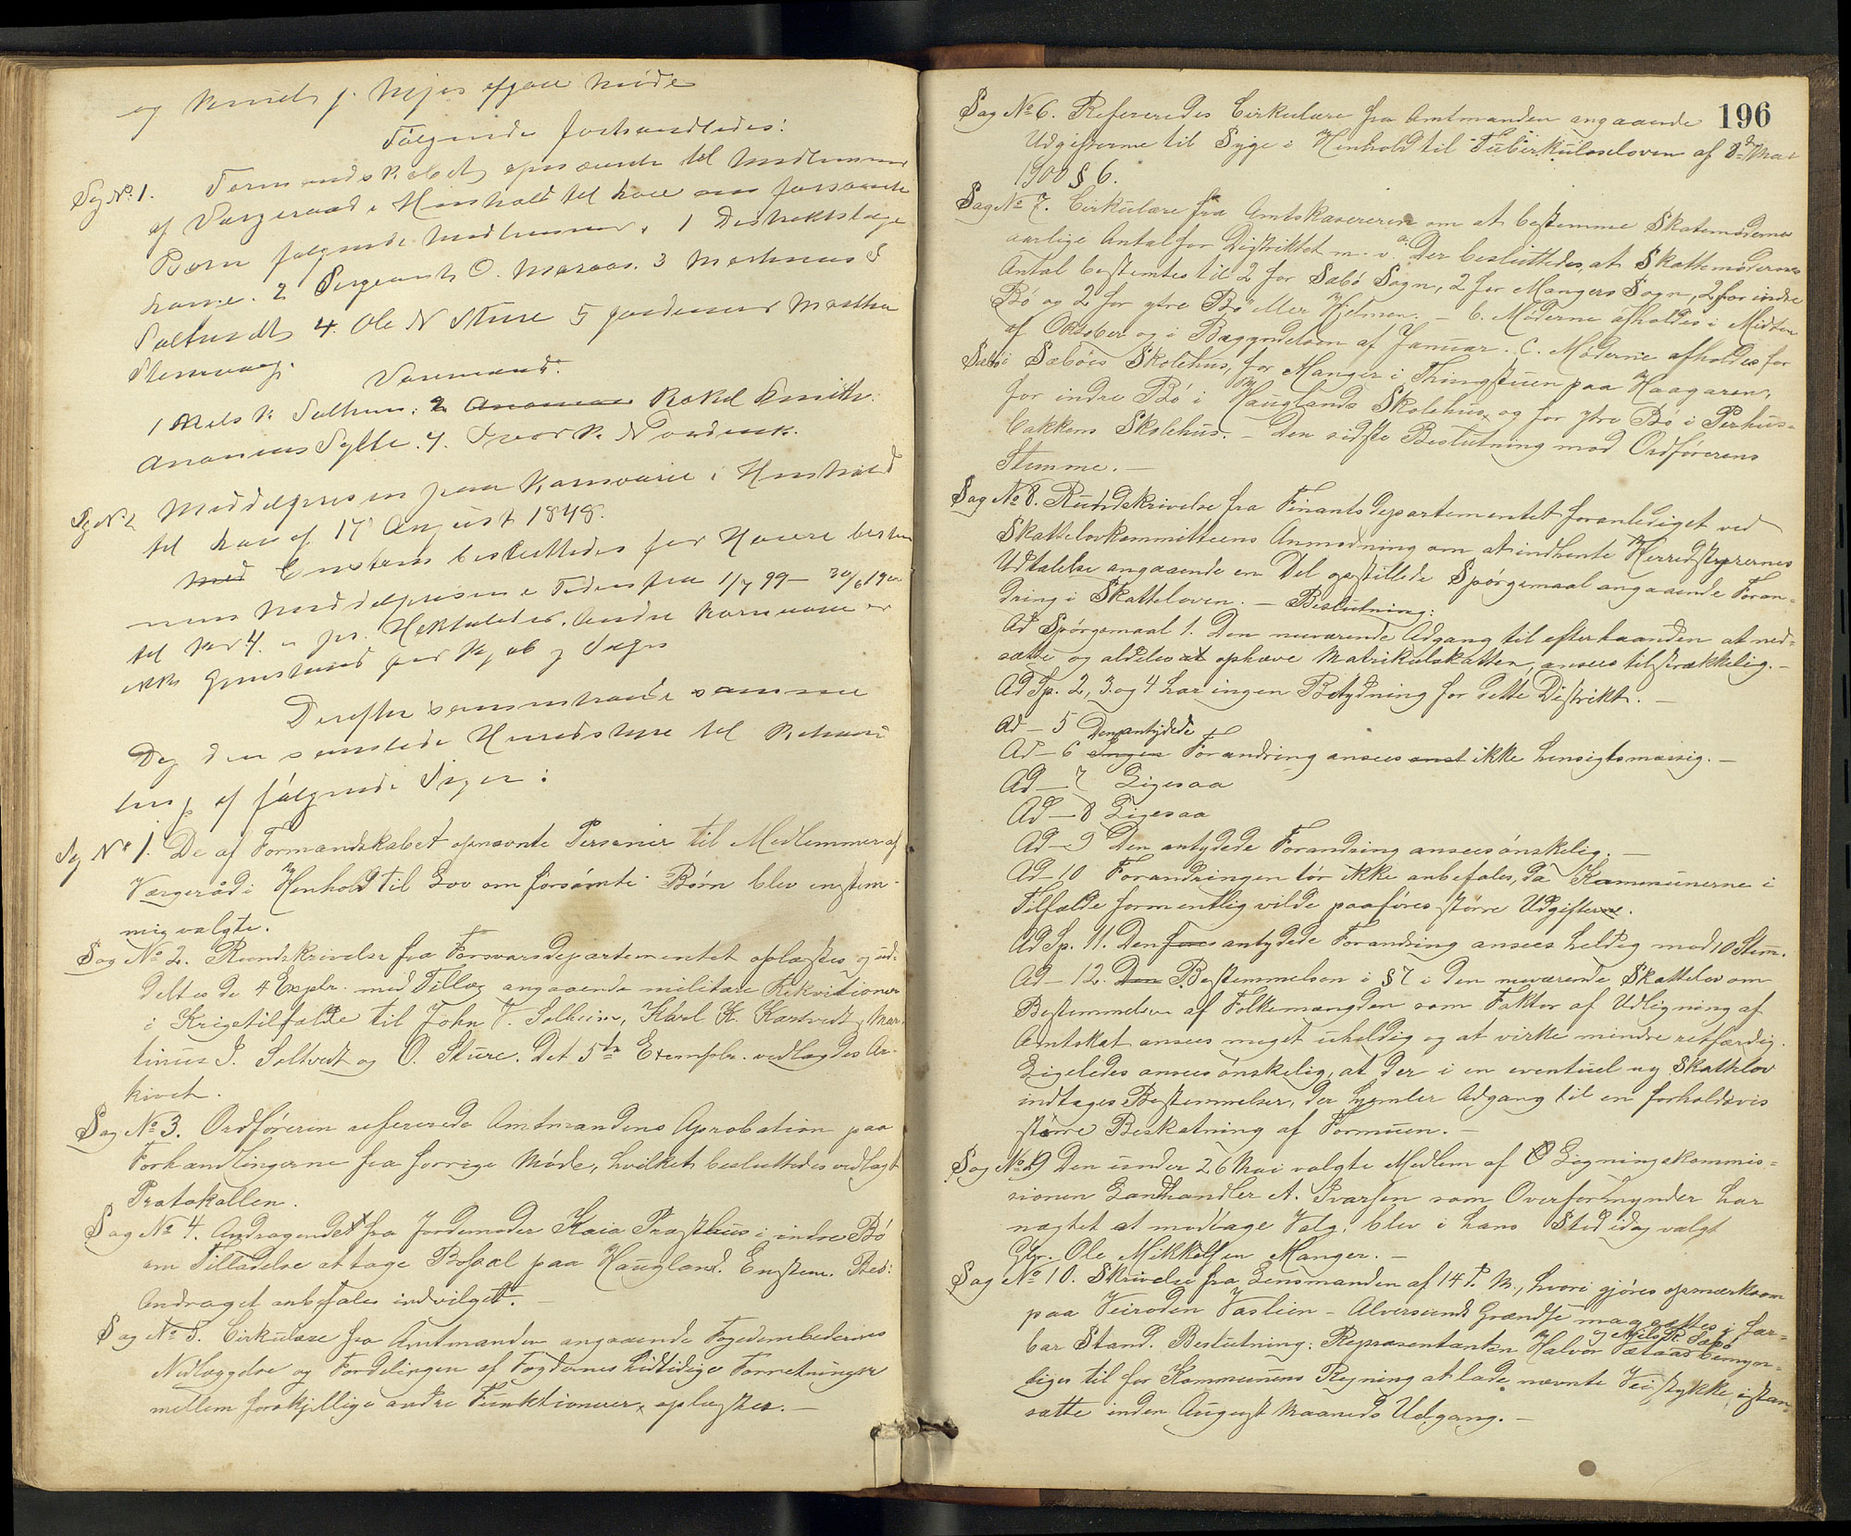 Følgende forhandledes:
Sag No 1. Formandskabet opnævnte til Medlemmer
af Værgeraad i Henhold til Lov om forsømte
Børn følgende Medlemmer, 1 Distriktslæge
2 Sergeant O. 3 Martinus S
Soltvedt 4. Ole N Sture 5 Jordemor Martha
Varemænd.
1 Nils K. Solheim. 2 Rakel Smith.
Ananias Sylte. 4. Ivar K. Nordvik.
Sag No 2 Middelprisen paa Kornvarer i Henhold
til Lov af 17 August 1848.
Enstem. besluttedes for Havre bestem
mes Middelprisen i Tiden fra 1/7 99 – 30/6 1900
til Kr 4. pr. Hektoliter. Andre Kornvarer er
ikke Gjenstand for Kjøb og Salg
Derefter sammentraadte samme
Dag den samlede Herredstyre til Behand
ling af følgende Sager:
Sag No 1. De af Formandskabet opnævnte Personer til Medlemmer af
Værgeråd i Henhold til Lov om forsømte Børn blev enstem-
mig valgte.
Sag No 2. Rundskrivelse fra Forsvarsdepartementet oplæstes og ud-
deltes de 4 Explr. med Tillæg angaaende militære Rekvisitioner
i Krigstilfælde til John V. Solheim, Karl K. Kartveit, Mar-
tinus S. Soltvedt og O. Sture. Det 5te Exemplr. vedlagdes Ar-
kivet.
Sag No 3. Ordføreren refererede Amtmandens Aprobation paa
Forhandlingerne fra forrige Møde, hvilket besluttedes vedlagt
Protokollen.
Sag No 4. Andragendet fra Jordemoder Kaia Præsthus i indre Bø
om Tilladelse at tage Bopæl paa Haugland. Enstem. Bes:
Andraget anbefales indvilget. –
Sag No 5. Cirkulære fra Amtmanden angaaende Fogedembedernes
Nedlæggelse og Fordelingen af Fogdernes hidtidige Forretninger
mellem forskjellige andre Funktionærer, oplæstes. –
196
Sag No 6. Refereredes Cirkulære fra Amtmanden angaaende
Udgifterne til Syge i Henhold til Tuberkuloseloven af 8de Mai
1900 § 6.
Sag No 7. Cirkulære fra Amtskassereren om at bestemme Skatemødernes
aarlige Antal for Distriktet m. v. a. Der besluttedes, at Skattemødernes
Antal bestemtes til 2 for Sæbø Sogn, 2 for Mangers Sogn, 2 for indre
Bø og 2 for ytre Bø eller Hjelmen. – b. Møderne afholdes i Midten
af Oktober og i Begyndelsen af Januar. C. Møderne afholdes for
Sæbø i Sæbøes Skolehus, for Manger i Thingstuen paa Haagaren,
for indre Bø i Hauglands Skolehus, og for ytre Bø i Perhus-
bakkens Skolehus. – Den sidste Beslutning mod Ordførerens
Stemme. –
Sag No 8. Rundskrivelse fra Finantsdepartementet foranlediget ved
Skattelovkommitteens Anmodning om at indhente Herredstyrernes
Udtalelse angaaende en Del opstillede Spørgsmaal angaaende Foran-
dring i Skatteloven. – Beslutning:
Ad Spørgsmaal 1. Den nuværende Adgang til efterhaanden at ned-
sætte og aldeles at ophæve Matrikulskatten, ansees tilstrækkelig. –
Ad Sp. 2, 3 og 4 har ingen Betydning for dette Distrikt. –
Ad – 5 Den antydede
Ad – 6 Ingen Forandring ansees ikke hensigtsmæssig. –
Ad – 7 Ligesaa
Ad – 8 Ligesaa
Ad – 9 Den antydede Forandring ansees ønskelig. –
Ad – 10 Forandringen tør ikke anbefales, da Kommunerne i
Tilfælde formentlig vilde paaføres større Udgifter.
Ad Sp. 11. Den antydede Forandring ansees heldig med 10 Stem.
Ad – 12. Den Bestemmelsen i § 7 i den nuværende Skattelov om
Bestemmelsen af Folkemængden som Faktor af Udligning af
Amtskat ansees meget uheldig og at virke mindre retfærdig.
Ligeledes ansees ønskelig, at der i en eventuel ny Skattelov
indtages Bestemmelser, der hjemler Adgang til en forholdsvis
større Beskatning af Formuen. –
Sag No 9 Den under 26 Mai valgte Medlem af Ligningskommis-
sionen Landhandler A. Ivarsen som Overformynder har
nægtet at modtage Valg, blev i hans Sted idag valgt
Gbr. Ole Mikkelsen Manger. –
Sag No 10. Skrivelse fra Lensmanden af 14 d. M., hvori gjøres opmærksom
paa Veiroden Vaslien – Alversunds Grændse maa sættes i far-
bar Stand. Beslutning: Repræsentanten Halvor Sætaas og Nils R. Sæbø bemyn-
diges til for Kommunens Regning at lade nævnte Veistykke istan-
sætte inden August Maaneds Udgang. –